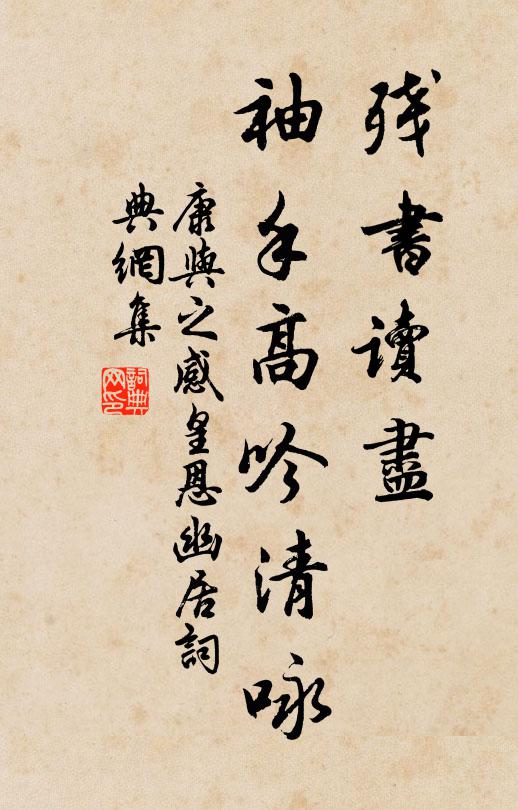 残書讀盡
袖手高吟清咏
康與之感皇恩幽居詞
典網集
詞典網印